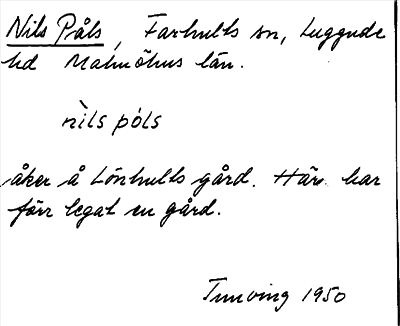 Nils Påls, Farhults sn, Luggude
hd Malmöhus län.
nìls pó̀ls
åker å Lönhults gård. Här har
förr legat en gård.
Tunving 1950